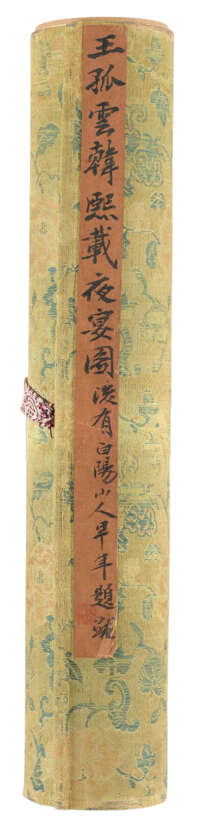 王孤雲韓熙載夜宴圖後有白陽山人早年題跋